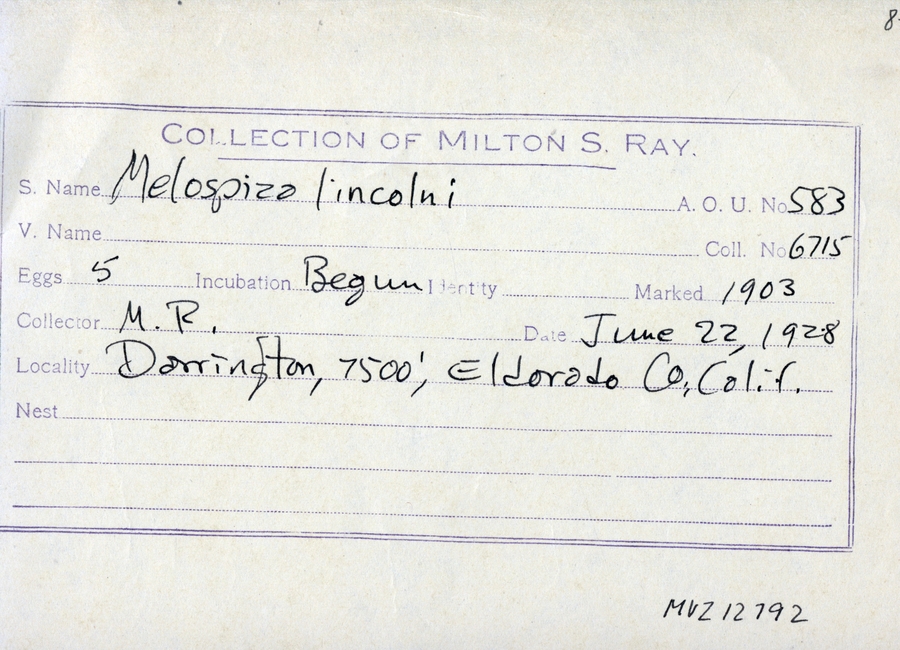 8-
COLLECTION OF MILTON S. RAY.
S. Name Melospiza lincolni A. O. U. No 583
V. Name Coll. No 6715
Eggs 5 Incubation Begun Identity Marked 1903
Collector M. R. Date June 22, 1928
Locality Darrington, 7500', Eldorado Co, Calif.
Nest
MVZ 12792